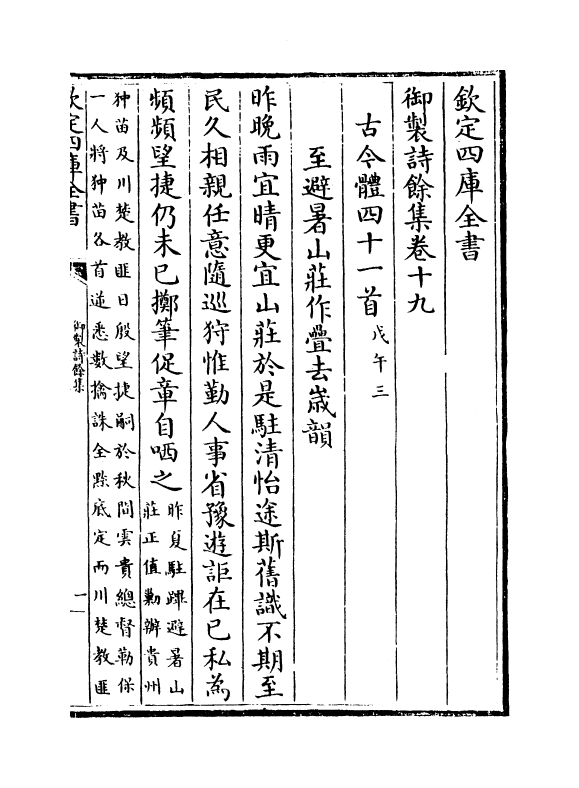 欽定四庫全書
御製詩餘集卷十九
古今體四十一首戊午三
至避暑山莊作疊去歲韻
昨晚雨宜晴更宜山莊於是駐清怡途斯舊識不期至
民久相親任意隨巡狩惟勤人事省豫遊詎在已私為
頻頻望捷仍未已擲筆促章自哂之昨夏駐蹕避暑山
莊正值勦辦貴州
狆苗及川楚教匪日殷望捷嗣於秋間雲貴總督勒保
一人將狆苗各首逆悉數擒誅全黔底定而川楚教匪
欽定四庫全書
御製詩餘集
一